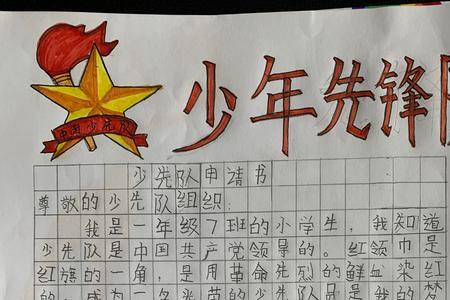 少年先锋队
中国少先队
少先队申请书
尊敬的少先队组织:
我是一年级7班的小学生,我知道
少先队是中国共产党领导的。红领巾是
红旗的一角,是用革命先烈的鲜血染红
的。成为一名光荣的少先队员是我的梦